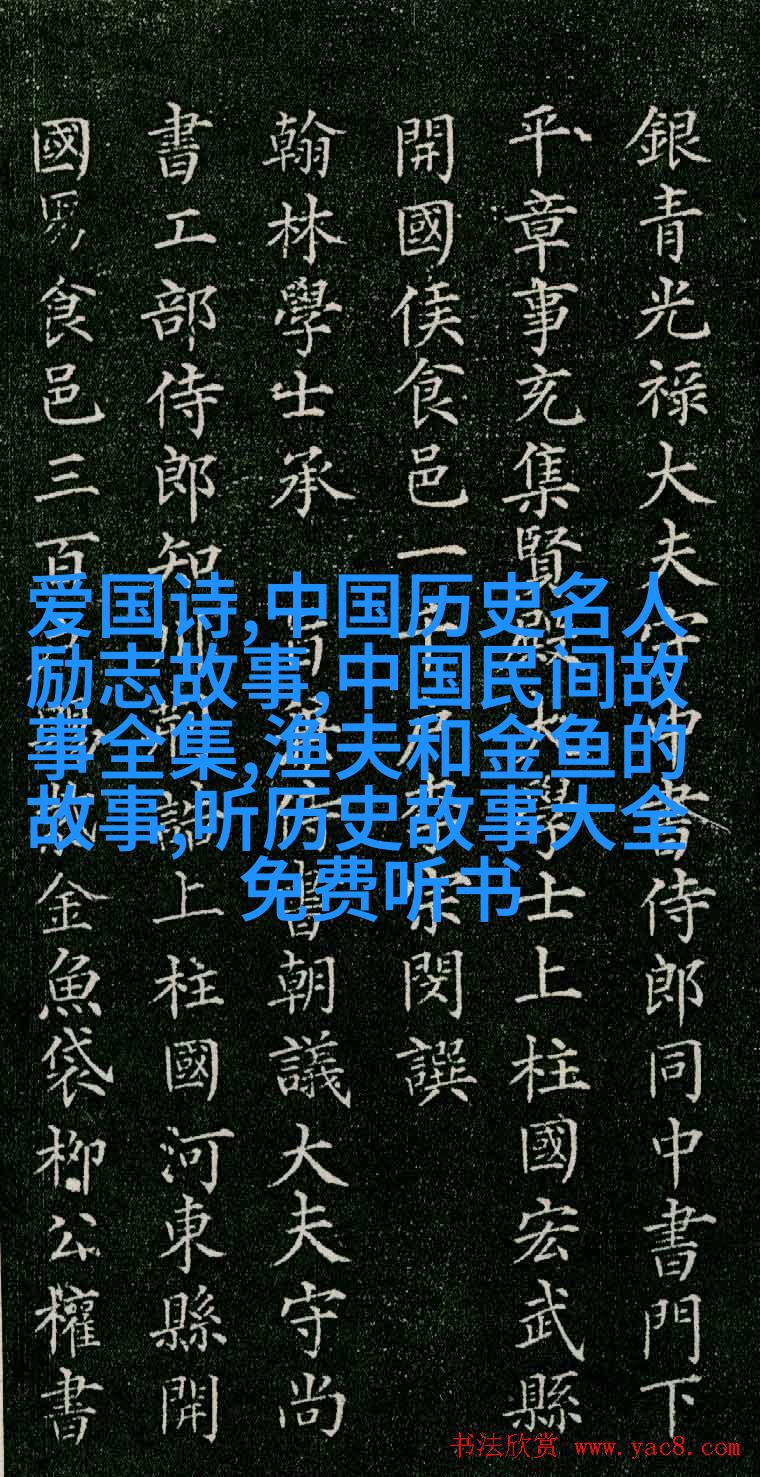 銀青光禄大夫守中書侍郎同中書門下
平章事充集賢殿大學士上柱國宏武縣
開國侯食邑一千户李宗閔譔
翰林學士承 旨兼侍書朝議大夫守尚
書工部侍郎知制誥上柱國河東縣開
國男食邑三百户賜紫金魚袋柳公權書
爱国诗,中国历史名人
励志故事,中国民间故
事全集,渔夫和金鱼的
故事,听历史故事大全
免费听书
书法欣赏 www.yac8.com